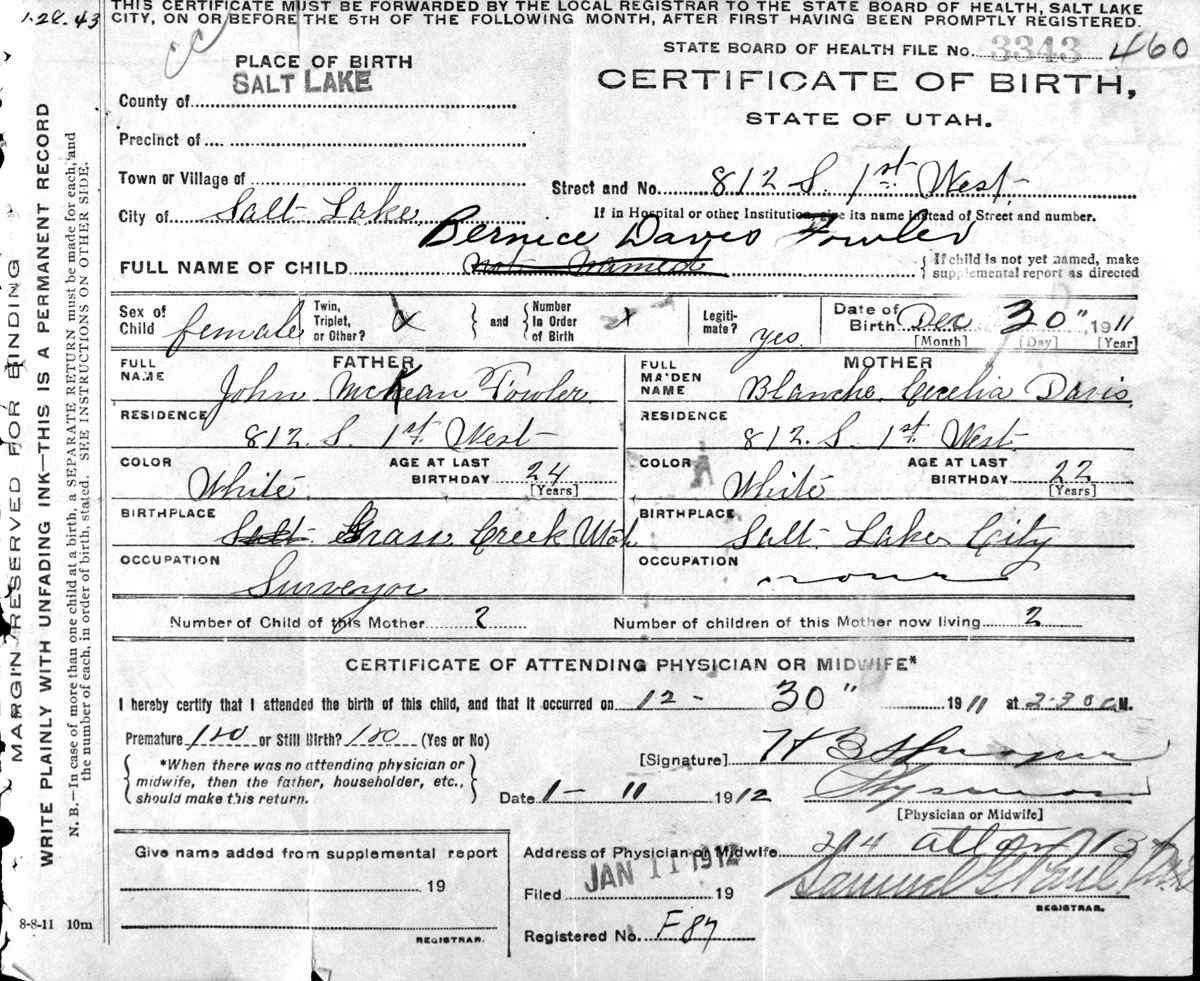 1.28.43
THIS CERTIFICATE MUST BE FORWARDED BY THE LOCAL REGISTRAR TO THE STATE BOARD OF HEALTH, SALT LAKE
CITY, ON OR BEFORE THE 5TH OF THE FOLLOWING MONTH, AFTER FIRST HAVING BEEN PROMPTLY REGISTERED.
STATE BOARD OF HEALTH FILE No. 3343 460
PLACE OF BIRTH
SALT LAKE
CERTIFICATE OF BIRTH,
STATE OF UTAH.
County of
Precinct of
Town or Village of
Street and No. 812 S. 1st West
City of Salt Lake
If in Hospital or other Institution, give its name instead of Street and number.
Bernice Davis Fowler
FULL NAME OF CHILD not named
{ If child is not yet named, make
supplemental report as directed
Sex of Child female
Twin, Triplet, or Other? X } and { Number In Order of Birth X
Legiti-mate? yes.
Date of Birth Dec 30" 1911
[Month] [Day] [Year]
FATHER
FULL NAME John McKean Fowler.
RESIDENCE
812. S. 1st West
COLOR White
AGE AT LAST BIRTHDAY 24
[Years]
BIRTHPLACE
Salt Grass Creek Utah
OCCUPATION
Surveyor
MOTHER
FULL MAIDEN NAME Blanche Cecelia Davis.
RESIDENCE
812. S. 1st West
COLOR White
AGE AT LAST BIRTHDAY 22
[Years]
BIRTHPLACE
Salt Lake City
OCCUPATION
none
Number of Child of this Mother 2 Number of children of this Mother now living 2
CERTIFICATE OF ATTENDING PHYSICIAN OR MIDWIFE*
I hereby certify that I attended the birth of this child, and that it occurred on 12 - 30" 1911 at 2-30 a M.
Premature no or Still Birth? no (Yes or No)
{ *When there was no attending physician or
midwife, then the father, householder, etc.,
should make this return. }
[Signature] H B
Date 1 - 11 1912 Physician
[Physician or Midwife]
Give name added from supplemental report
19
REGISTRAR.
Address of Physician or Midwife 214
JAN 11 1912
Filed 19 Samuel G Paul
REGISTRAR.
Registered No. F87
8-8-11 10m
MARGIN RESERVED FOR BINDING
WRITE PLAINLY WITH UNFADING INK—THIS IS A PERMANENT RECORD
N. B.—In case of more than one child at a birth, a SEPARATE RETURN must be made for each, and
the number of each, in order of birth, stated. SEE INSTRUCTIONS ON OTHER SIDE.